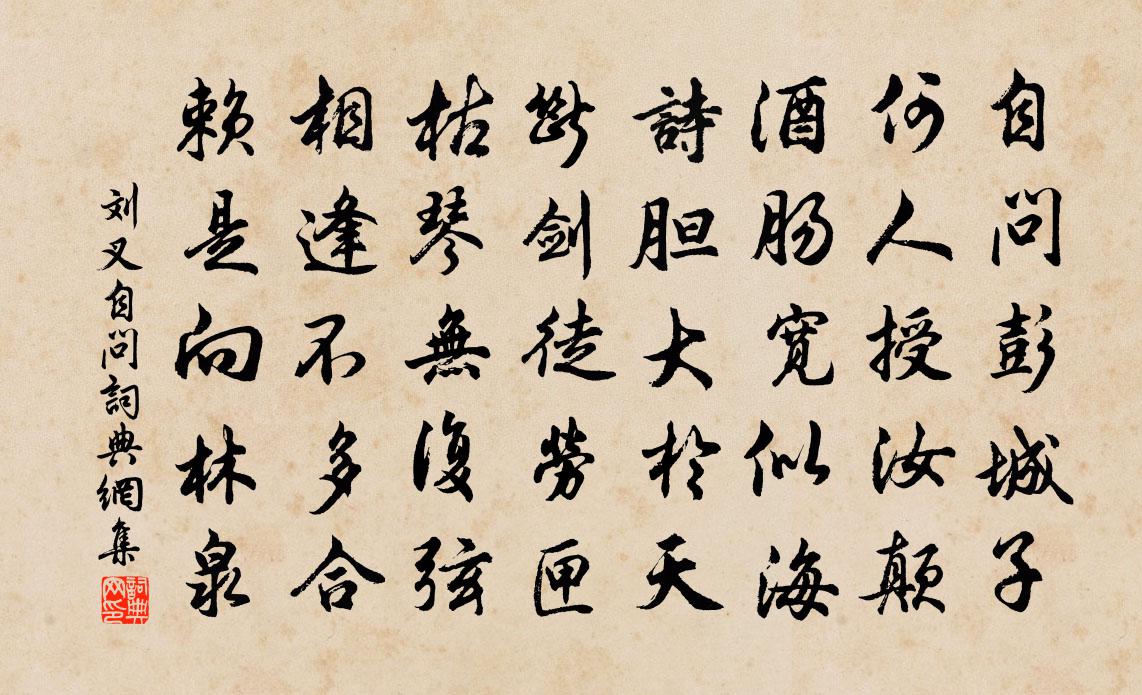 自问彭城子
何人授汝颠
酒肠宽似海
詩胆大於天
斷剑徒勞匣
枯琴無復弦
相逢不多合
赖是向林泉
刘叉自问詞典網集
詞典
网印